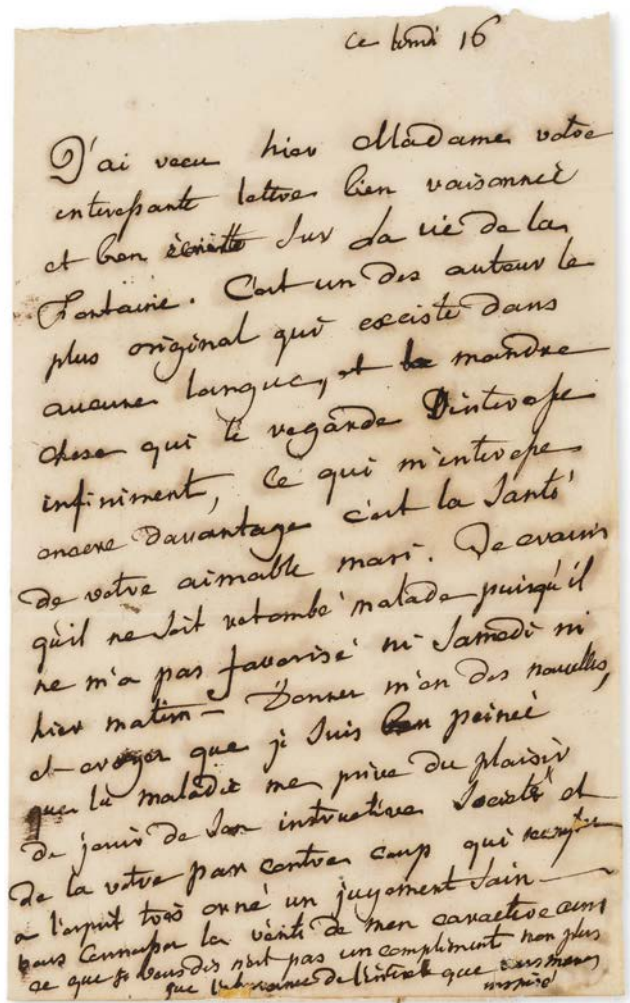 ce lundi 16
J'ai recu hier Madame votre
interessante lettre bien raisonneé
et bien écritte sur La vie de la
Fontaine. C'est un des auteur le
plus original qui exciste dans
aucune langue, et la moindre
chose qui le regarde D'interesse
infiniment, Ce qui m'interesse
encore davantage c'est la Santé
de votre aimable mari. Je crains
qu'il ne soit retombé malade puisqu'il
ne m'a pas favorisé ni Samedi ni
hier matin – Donner m'en des nouvelles,
et croyez que je suis bien peineé
que la maladie me prive du plaisir
de jouir de Son instructive Societé et
de la votre par contre coup qui
a l'esprit très orné un jugement Sain —
vous Connoisser la vérité de mon caractere ainsi
ce que je vous dis n'est pas un compliment non plus
que de l'interet que vous m'avez
inspiré